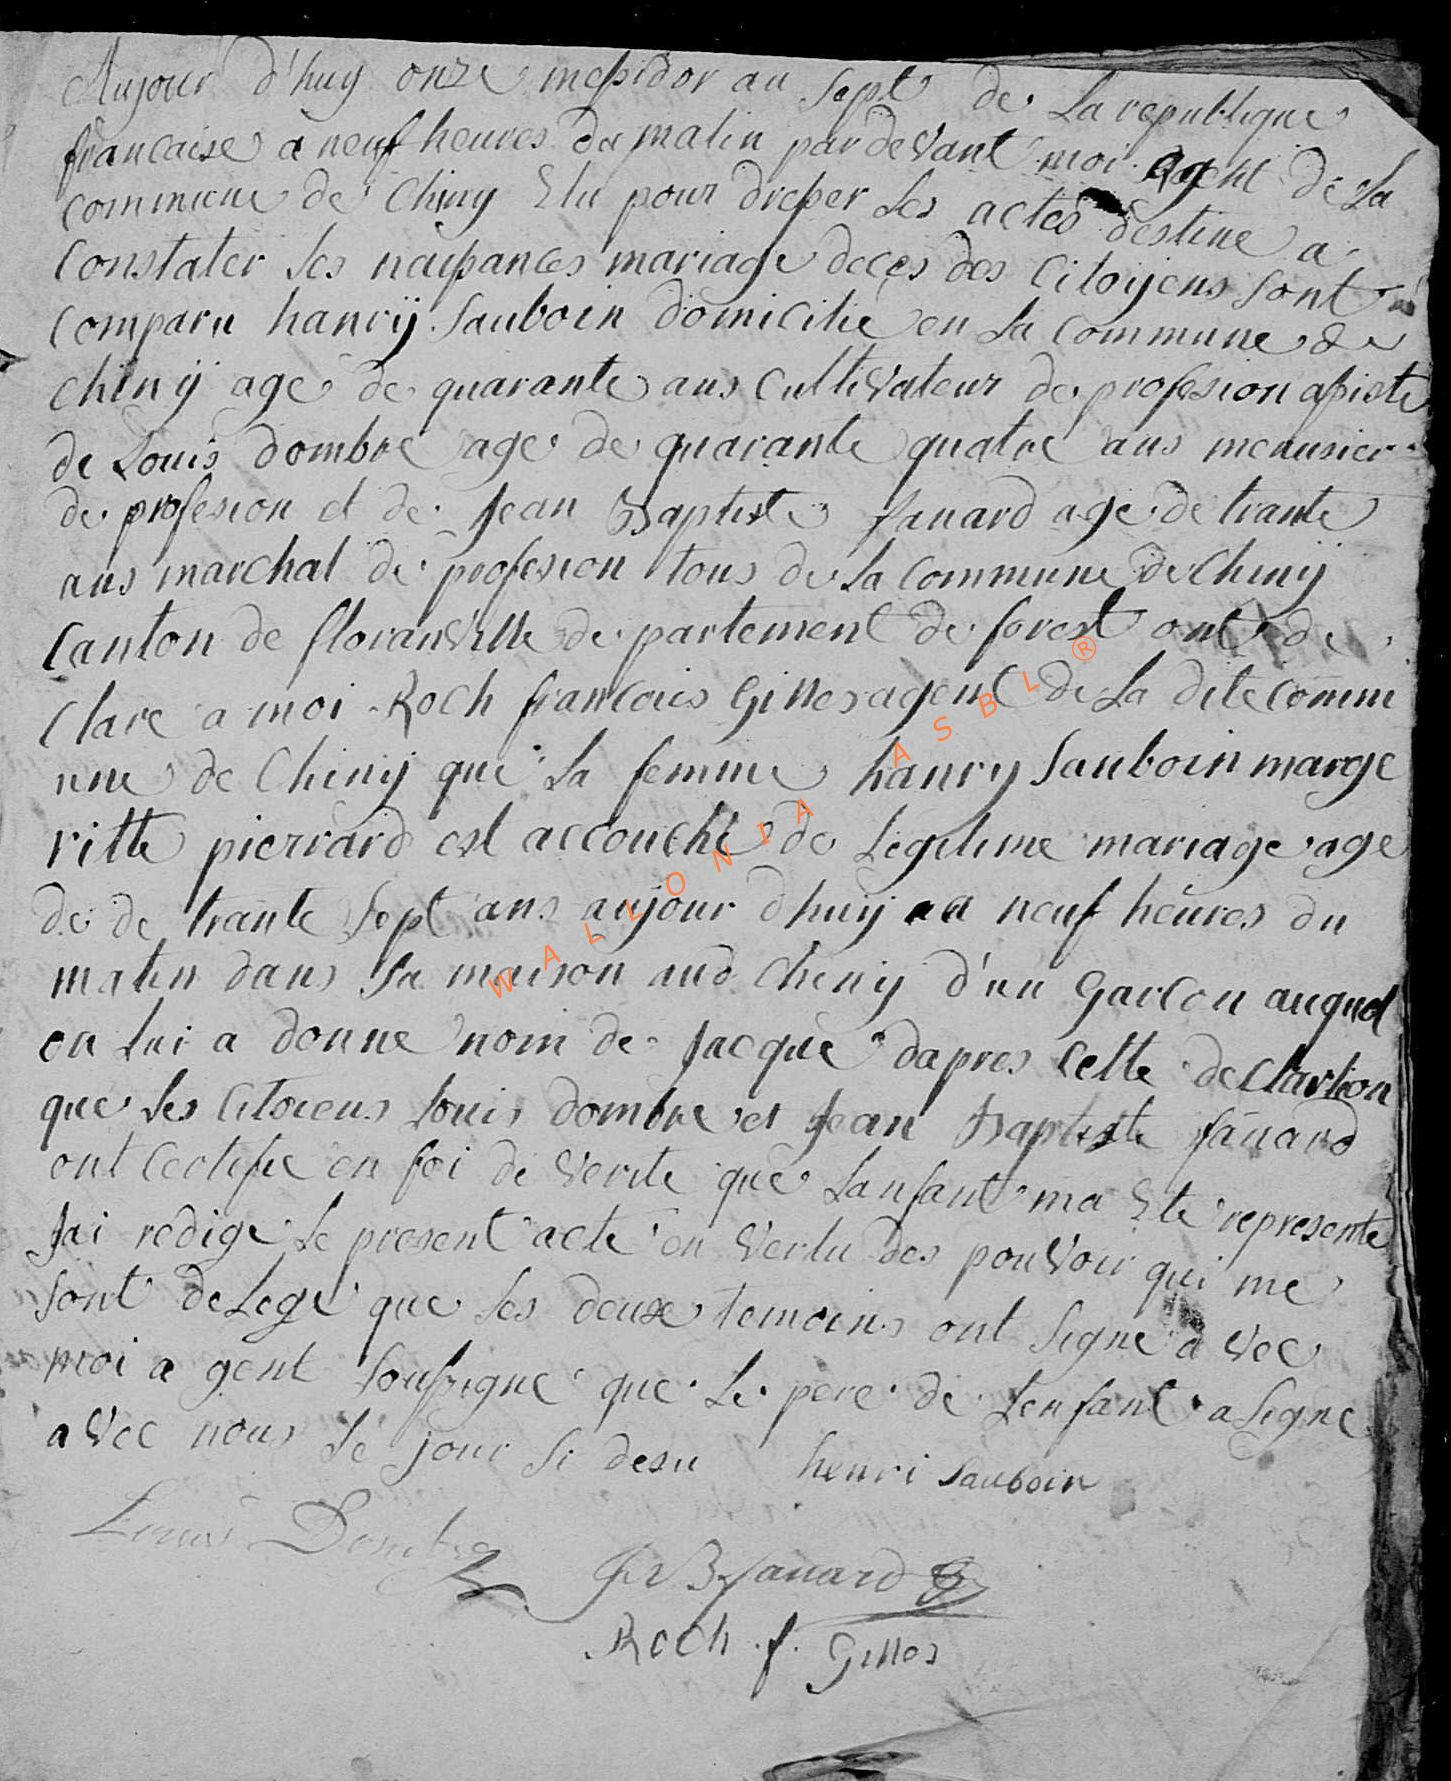 Aujour d'huy onze messidor an sept de La republique
francaise a neuf heures du matin par devant moi agent de La
commune de Chiny Elu pour dresser Les actes destine a
Constater Les naissances mariage deces des Citoijens sont
comparu hanrij Sauboin domicilie en La commune de
chinij age de quarante ans Cultivateur de profesion assiste
de Louis dombre age de quarante quatre ans menusier
de profesion et de Jean Baptiste fanard age de trante
ans marchal de profesion tous de La Commune de Chinij
Canton de floranville de partement de forest ont de
Clare a moi Roch francois Gilles agent de La dite Comm
une de Chinij que La femme hanry Sauboin marge
ritte pierrard est accouche de Legitime mariage age
de de trante sept ans aujour dhuij a neuf heures du
matin dans sa maison aud Chinij d'un Garcon auquel
on Lui a donne nom de Jacque dapres Cette declartion
que Les Citoiens Louis dombre et Jean Baptiste fanard
ont Certifie en foi de verite que Lanfant ma Ete represente
Jai redige Le present acte en vertu des pouvoir qui me
sont deLege que Les deux temoins ont signe a vec
moi a gent soussigne que Le pere de Lenfant a signe
a vec nous Le jour si desu henri Sauboin
Louis Dombre
J B fanard
Roch f. Gilles
WALLONIA ASBL ®